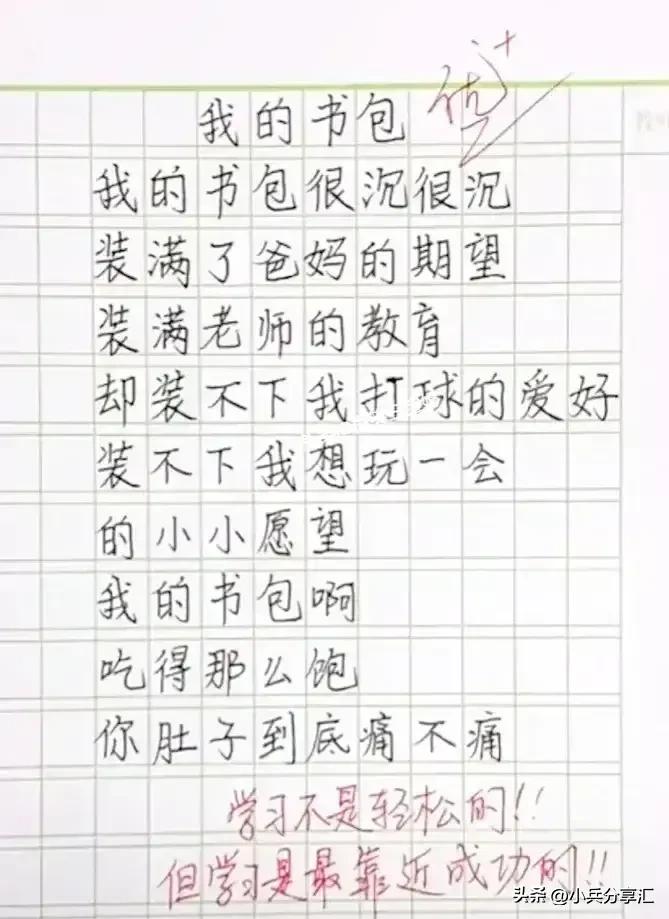 我的书包
优+
我的书包很沉很沉
装满了爸妈的期望
装满老师的教育
却装不下我打球的爱好
装不下我想玩一会
的小小愿望
我的书包啊
吃得那么饱
你肚子到底痛不痛
学习不是轻松的!!
但学习是最靠近成功的!!
头条 @小兵分享汇